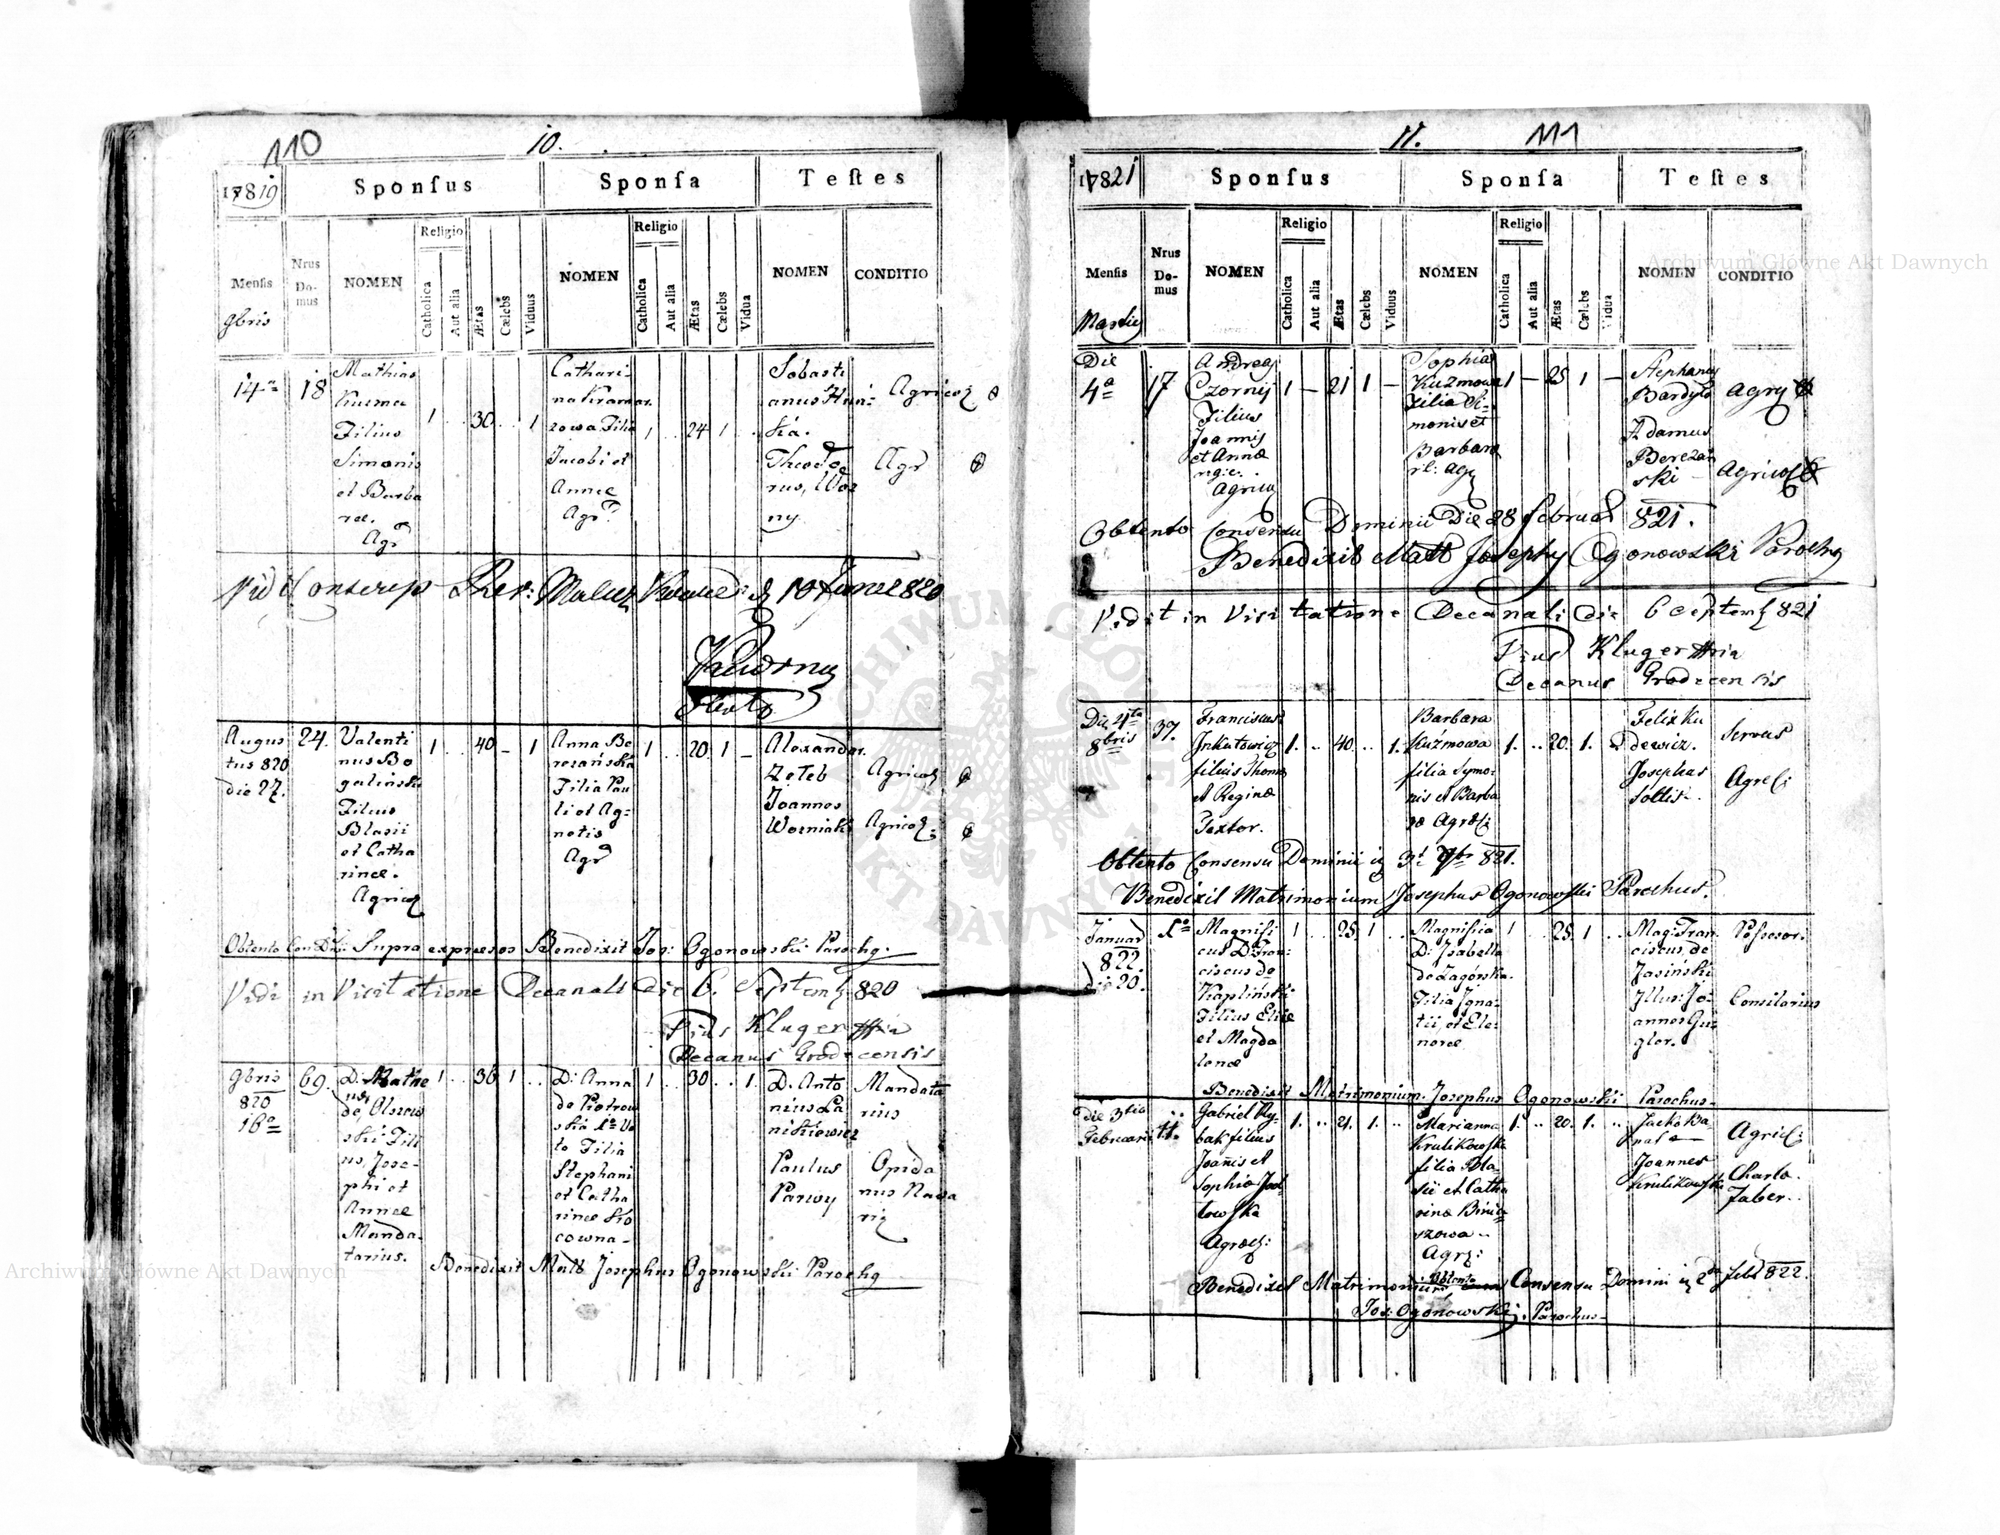 110
10.
1819
Sponſus
Sponſa
Teſtes
Menſis
9bris
Nrus Domus
NOMEN
Religio
Catholica
Aut alia
Ætas
Cælebs
Viduus
NOMEN
Religio
Catholica
Aut alia
Ætas
Cælebs
Vidua
NOMEN
CONDITIO
14ª
18
Mathias
Kuzma
Filius
Simonis
et Barba
ræ.
Agr
1 .. 30 .. 1
Cathari-
na Kramar
zowa Filia
Jacobi et
Annæ
Agr
1 .. 24 1 ..
Sebasti
anus Hun-
kia.
Theodo
rus, Woz
ny.
Agricol
Agr
Vidi Conscrip
10 Junii 820
Augus
tus 820
die 27.
24.
Valenti
nus Bo
galinski
Filius
Blasii
et Catha
rinæ.
Agricol
1 .. 40 – 1
Anna Be
rezańska
Filia Pau
li et Ag-
netis
Agr
1 .. 20 1 –
Alexander
Zeleb
Joannes
Wozniak
Agricol
Agricol:
Obtento Con: Dni: Supra expresso Benedixit Jos: Ogonowski Paroch
Vidi in Visitatione Decanali die 6. Septem 820
Pius Kluger
Decanus Grodecensis
9bris
820
16ª
69.
D: Mathe
us
de Olszew
ski Fili
us, Jose-
phi et
Annæ
Manda-
tarius.
1 .. 36 1 ..
D: Anna
de Piotrow
ska 1º Vo
to Filia
Stephani
et Catha
rinæ
cowna –
1 .. 30 .. 1.
D. Anto
nius Pa
nikiewicz
Paulus
Parwy
Mandata
rius
Opida
nus Nava
riz
Benedixit Matr Josephus Ogonowski Paroch
11.
111
1821
Sponſus
Sponſa
Teſtes
Menſis
Martii
Nrus Domus
NOMEN
Religio
Catholica
Aut alia
Ætas
Cælebs
Viduus
NOMEN
Religio
Catholica
Aut alia
Ætas
Cælebs
Vidua
NOMEN
CONDITIO
Die
4ª
17
Andreas
Czornij
Filius
Joannis
et Annæ
Agricol
1 – 21 1 –
Sophia
Kuzmowa
Filia Si-
monis et
Barbaræ
1 – 25 1 –
Stephanus
Bardyło
Adamus
Berezań
ski –
Agr
Agricol
Obtento Consensu Dominii Die 28 Februar 821.
Benedixit Matr Josephus Ogonowski Parochus
Vidit in Visitatione Decanali die 6 Septem 821
Pius Kluger
Decanus Grodecensis
Die 4ta
8bris
37.
Franciscus
Inkutowicz
filius Thomæ
et Reginæ
Textor.
1. .. 40 .. 1.
Barbara
Kuźmowa
filia Symo-
nis et Barba
ræ Agricol
1. .. 20. 1.
Felix Ku
dewicz.
Josephus
Soltis.
Servus
Agrol:
Obtento Consensu Dominii 821.
Benedixit Matrimonium Josephus Ogonowski Parochus.
Januar
822
die 20.
1º
Magnifi
cus D: Fran-
ciscus de
Kapliński
Filius Eliæ
et Magda
lenæ
1 .. 25 1 ..
Magnificia
D: Isabella
de Zagórska.
Filia Igna-
tii, et Ele-
noræ
1 .. 25 1 ..
Mag: Fran
ciscus de
Jasiński
Illus: Jo-
annes Gu-
gler.
Possesor.
Consilarius
Benedixit Matrimonium Josephus Ogonowski Parochus.
Die 3tia
Februarii
11.
Gabriel Ry-
bak filius
Joañis et
Sophiæ Jod-
łowska
Agricol:
1. .. 21. 1. ..
Marianna
Krulikowska
filia Bla-
sii et Catha
rinæ
szowa –
Agr:
1. .. 20. 1. ..
Jacko Ba-
nas –
Joannes
Krulikowski
Agricol:
Charta.
Faber.
Benedixit Matrimonium, Obtento Consensu Domini 2da feb 822.
Jos: Ogonowski, Parochus.
Archiwum Główne Akt Dawnych
Archiwum Główne Akt Dawnych
ARCHIWUM GŁÓWNE AKT DAWNYCH